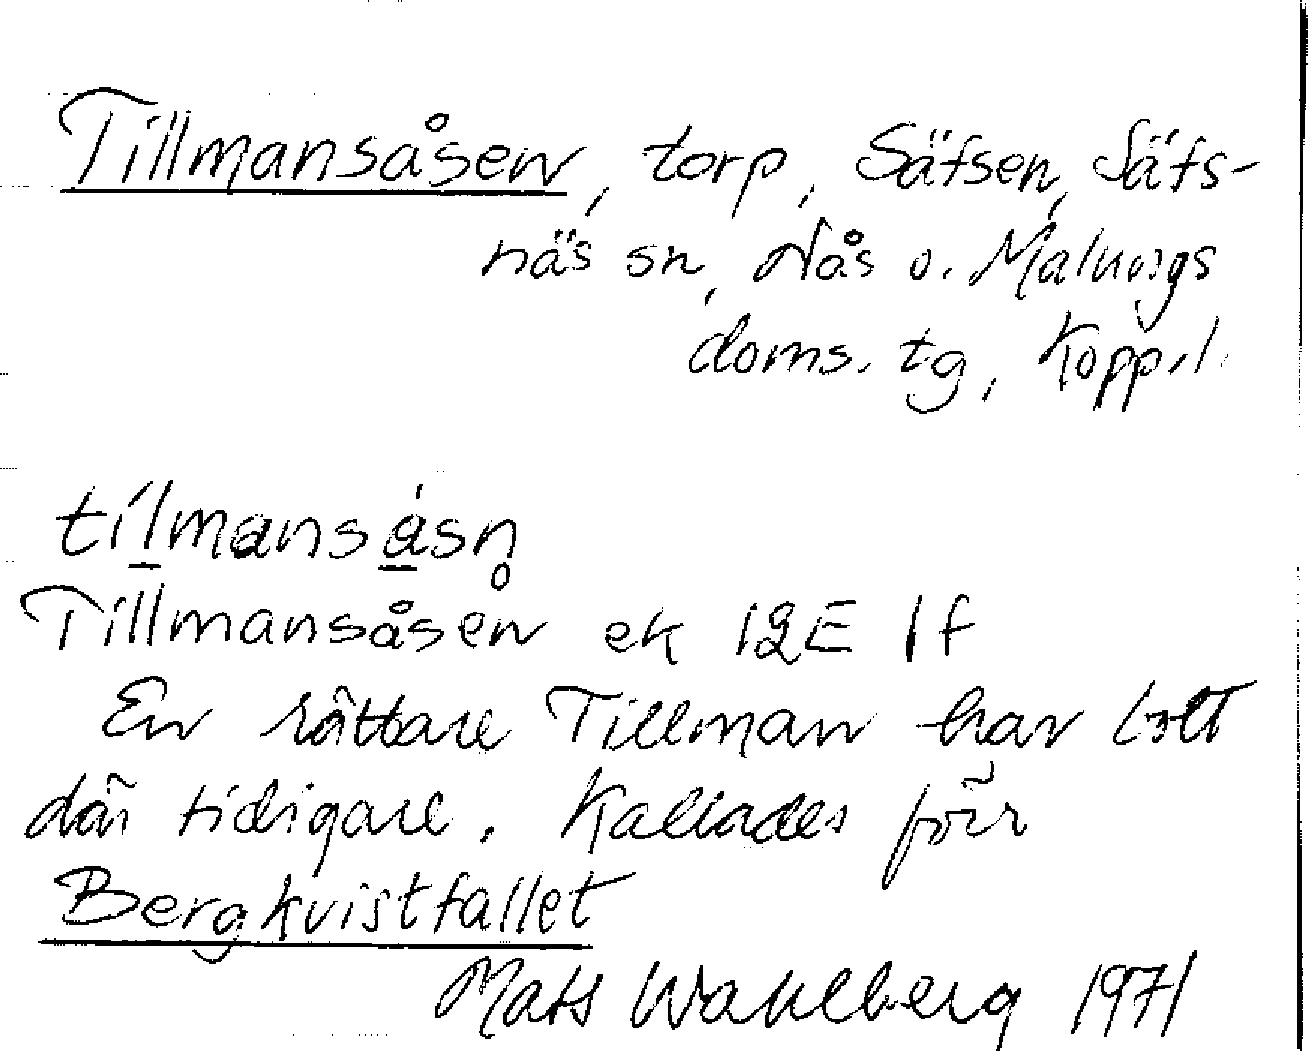 Tillmansåsen, torp, Säfsen, Säfs-
näs sn, Nås o. Malungs
doms. tg, Kopp. l.
tílmansàsn̥
Tillmansåsen ek 12E 1f
En rättare Tillman har bott
där tidigare. Kallades förr
Bergkvistfallet
Mats Wahlberg 1971